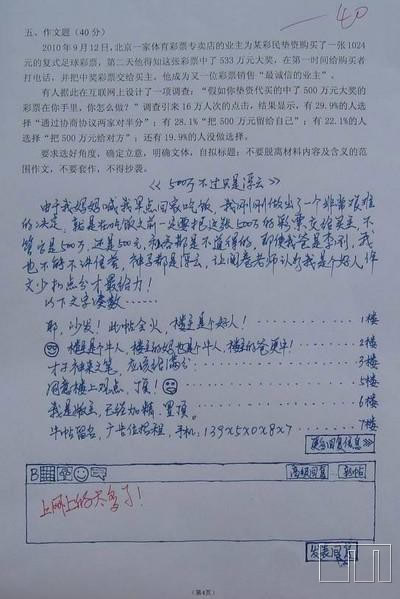 -40
五、作文题(40分)
2010年9月12日,北京一家体育彩票专卖店的业主为某彩民垫资购买了一张1024
元的复式足球彩票,第二天他得知这张彩票中了533万元大奖,在第一时间给购买者
打电话,并把中奖彩票交给买主,他成为又一位彩票销售“最诚信的业主”。
有人据此在互联网上设计了一项调查:“假如你垫资代买的中了500万元大奖的
彩票在你手里,你怎么做?”调查引来16万人次的点击,结果显示,有29.9%的人选
择“通过协商协议两家对半分”;有28.1%“把500万元留给自己”;有22.1%的人
选择“把500万元给对方”;还有19.9%的人没做选择。
要求选好角度,确定立意,明确文体,自拟标题;不要脱离材料内容及含义的范
围作文,不要套作,不得抄袭。
《500万不过只是浮云》
由于我妈妈喊我早点回家吃饭,我刚刚做出了一个非常艰难
的决定,就是在吃饭之前一定要把这张500万的彩票交给买主,不
管它是500万,还是500元,都是不值得的,即使我爸是李刚,我
也不能不讲信誉,神马都是浮云,让阅卷老师认为我是个好人,作
文少扣点分才最给力!
以下文字凑数……
耶,沙发!此帖会火,楼主是个好人! 1楼
楼主是个牛人,楼主的妈也是个牛人,楼主的爸更牛! 2楼
才子神来之笔,应该给满分 3楼
同意楼上观点,顶! 5楼
我是版主,已经加精,置顶。 6楼
牛帖留名,广告位招租,手机:139x5x0x8x7 7楼
更多回复信息>>
B
高级回复 新帖
上网上的太多了!
发表回复
(第4页)